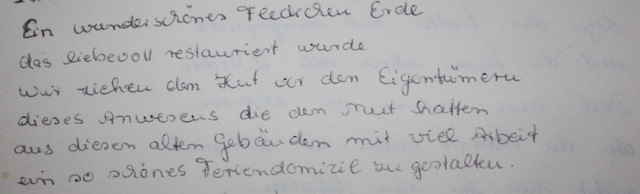 Ein wunderschönes Fleckchen Erde
das liebevoll restauriert wurde
Wir ziehen den Hut vor den Eigentümern
dieses Anwesens die den Mut hatten
aus diesen alten Gebäuden mit viel Arbeit
ein so schönes Feriendomizil zu gestalten.